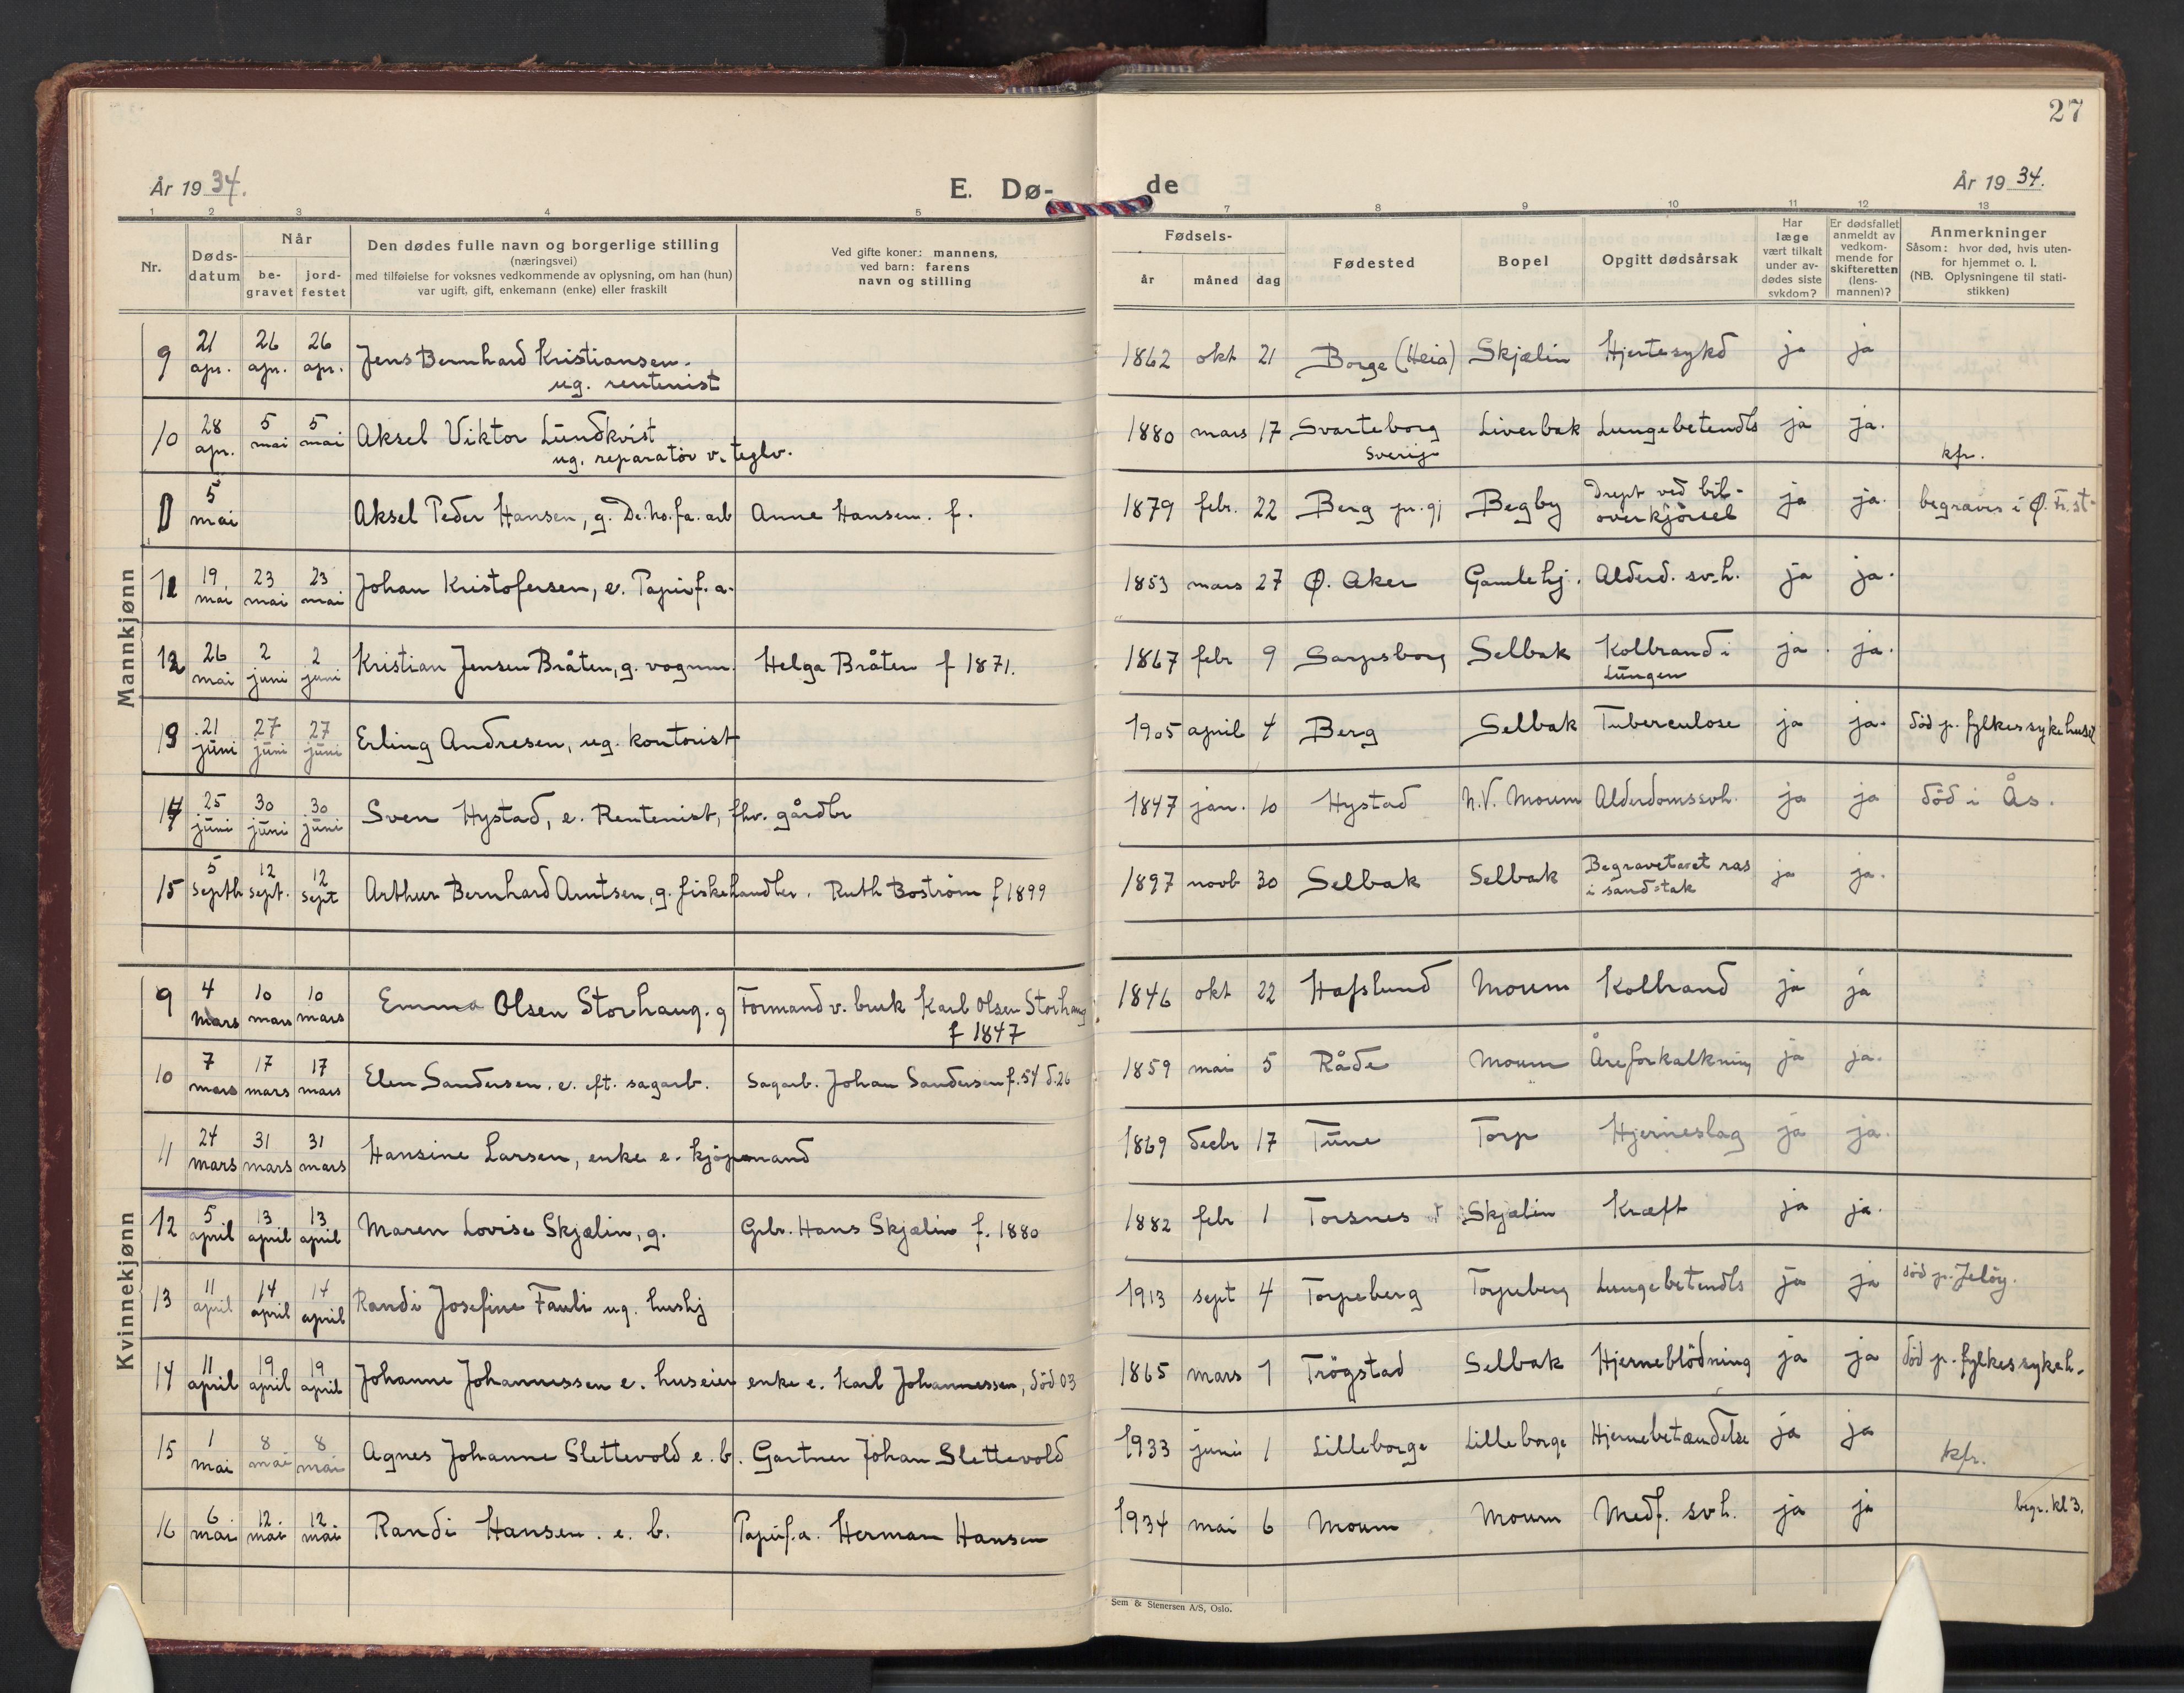 27
År 1934.
E. Dø-
de
År 1934.
1 2 3 4 5 7 8 9 10 11 12 13
Nr.
Døds-
datum
Når
be-
gravet
jord-
festet
Den dødes fulle navn og borgerlige stilling
(næringsvei)
med tilføielse for voksnes vedkommende av oplysning, om han (hun)
var ugift, gift, enkemann (enke) eller fraskilt
Ved gifte koner: mannens,
ved barn: farens
navn og stilling
Fødsels-
år måned dag
Fødested
Bopel
Opgitt dødsårsak
Har
læge
vært tilkalt
under av-
dødes siste
sykdom?
Er dødsfallet
anmeldt av
vedkom-
mende for
skifteretten
(lens-
mannen)?
Anmerkninger
Såsom: hvor død, hvis uten-
for hjemmet o. l.
(NB. Oplysningene til stati-
stikken)
Mannkjønn
9 21 apr. 26 apr. 26 apr. Jens Bernhard Kristiansen. 1862 okt 21 Borge (Heia) Skjælin Hjertesykd ja ja
ug. rentenist
10 28 apr. 5 mai 5 mai Aksel Viktor Lundkvist 1880 mars 17 Svarteborg Liverbak Lungebetendls ja ja.
ug. reparatör v. teglv. Sverige kfr.
5 mai Aksel Peder Hansen, g. De.no.fa.arb Anne Hansen. f. 1879 febr. 22 Berg pr. gj Begby Drept ved bil- ja ja. begraves i Ø. Fr.st-
overkjörsel
11 19 mai 23 mai 23 mai Johan Kristofersen, e. Papirf.a. 1853 mars 27 Ø. Aker Gamlehj. Alderd. svh. ja ja.
12 26 mai 2 juni 2 juni Kristian Jensen Bråten, g. vognm. Helga Bråten f 1871. 1867 febr 9 Sarpsborg Selbak Kolbrand i ja ja.
Lungen
13 21 juni 27 juni 27 juni Erling Andresen, ug. kontorist 1905 april 4 Berg Selbak Tuberculose ja ja. död p. fylkessykehuset
14 25 juni 30 juni 30 juni Sven Hystad, e. Rentenist, fhv. gårdbr 1847 jan. 10 Hystad N.V. Moum Alderdomssvh. ja ja död i Ås.
15 5 septb 12 sept. 12 sept Arthur Bernhard Arntsen, g. fiskehandler. Ruth Boström f 1899 1897 novb 30 Selbak Selbak Begravet av et ras ja ja.
i sand=tak
Kvinnekjønn
9 4 mars 10 mars 10 mars Emma Olsen Storhaug. g Formand v. bruk Karl Olsen Storhaug 1846 okt 22 Hafslund Moum Kolbrand ja ja
f 1847
10 7 mars 17 mars 17 mars Elen Sandersen. e. eft. sagarb. Sagarb. Johan Sandersen f. 54 d. 26 1859 mai 5 Råde Moum Åreforkalkning ja ja.
11 24 mars 31 mars 31 mars Hansine Larsen, enke e. kjöpmand 1869 decbr 17 Tune Torp Hjerneslag ja ja.
12 5 april 13 april 13 april Maren Lovise Skjælin, g. Grbr. Hans Skjælin f. 1880 1882 febr 1 Torsnes Skjælin Kræft ja ja.
13 11 april 14 april 14 april Randi Josefine Fauli ug. hushj 1913 sept 4 Torpeberg Torpeberg Lungebetendls ja ja död p. Jelöy.
14 11 april 19 april 19 april Johanne Johannessen e. huseier enke e. Karl Johannessen, död 03 1865 mars 7 Trögstad Selbak Hjerneblödning ja ja död p. fylkessykeh.
15 1 mai 8 mai 8 mai Agnes Johanne Slettevold e. b. Gartner Johan Slettevold 1933 juni 1 Lilleborge Lilleborge Hjernebetændelse ja ja kfr.
16 6 mai 12. mai 12 mai Randi Hansen. e. b. Papirf.a. Herman Hansen 1934 mai 6 Moum Moum Medf. svh. ja ja begr. kl 3.
Sem & Stenersen A/S, Oslo.